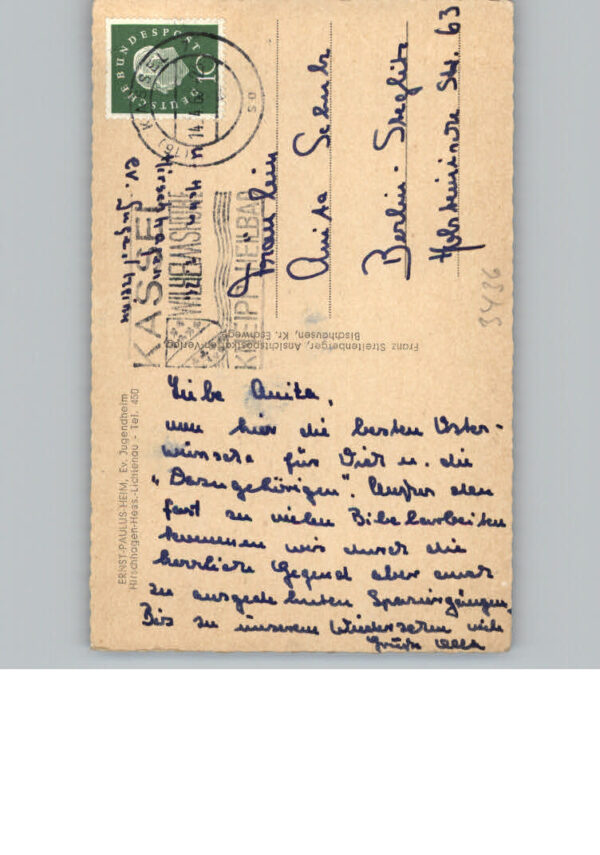 DEUTSCHE BUNDESPOST
10
KASSEL
WILHELMSHÖHE
KNEIPPHEILBAD
Fräulein
Anita
Berlin-Steglitz
Holsteinische Str. 63
3436
Franz Streitenberger, Ansichtspostkarten-Verlag,
Bischhausen, Kr. Eschwege
ERNST-PAULUS-HEIM, Ev. Jugendheim
Hirschhagen-Hess.-Lichtenau - Tel. 450
Liebe Anita,
nun hier die besten Oster-
wünsche für Dich u. die
„Dazugehörigen". Außer den
fast zu vielen Bibelarbeiten
kommen wir durch die
herrliche Gegend aber auch
zu ausgedehnten Spaziergängen.
Bis zu unserem Wiedersehen viele
Grüße